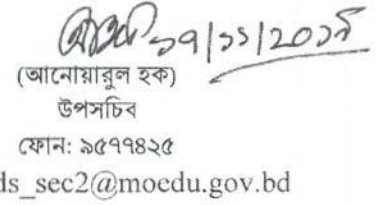 ১৭/১১/২০১৯
(আনোয়ারুল হক)
উপসচিব
ফোন: ৯৫৭৭৪২৫
ds_sec2@moedu.gov.bd